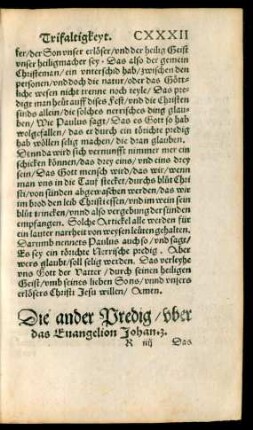 Trifaltigkeyt. CXXXII
ser/der Son vnser erlöser/vnd der heilig Geist
vnser heiligmacher sey. Das also der gemein
Christeman/ein vnterschid hab/zwischen den
personen/vnd doch die natur/oder das Gött-
liche wesen nicht trenne noch teyle. Das pre-
digt man heüt auff disen Fest/vnd die Christen
sinds allein/die solches nerrisches ding glau-
ben/Wie Paulus sagt/Das es Gott so hab
wolgefallen/das er durch ein törichte predig
hab wöllen selig machen/die dran glauben.
Denn da wird sich vernunfft nimmer mer ein
schicken können/das drey eins/vnd eins drey
sein/Das Gott mensch wird/das wir/wenn
man vns in die Tauf stecket/durchs blůt Chri
sti/von sünden abgewaschen werden/das wir
im brod den leib Christi essen/vnd im wein sein
blůt trincken/vnnd also vergebung der sünden
empfangen. Solche Artickel alle werden für
ein lauter narrheit von weysen leüten gehalten.
Darumb nennets Paulus auch so/vnd sagt/
Es sey ein törichte Nerrische predig. Aber
wers glaubt/soll selig werden. Das verleyhe
vns Gott der Vatter/durch seinen heiligen
Geist/vmb seines lieben Sons/vnnd vnsers
erlösers Christi Jesu willen/Amen.
Die ander Predig/vber
das Euangelion Johan. 3.
R iiij Das